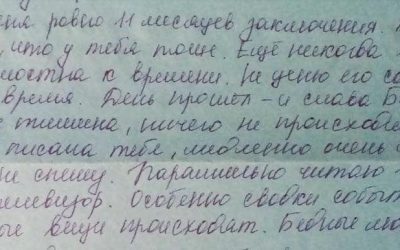 ня ровно 11 месяцев заключения.
, что у тебя тоже. Ещё никогда
мостна к времени. Не ценю его со
время. День прошёл – и слава Б
е тишина, ничего не происходи
писала тебе, медленно очень
не спешу. Параллельно читаю
елевизор. Особенно сводки событ
ые вещи происходят. Бедные лю